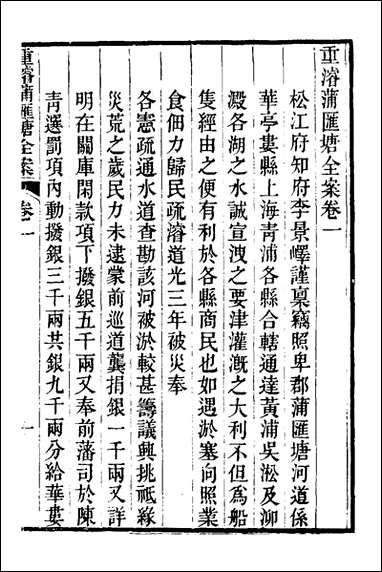 重濬蒲匯塘全案卷一
松江府知府李景嶧謹稟竊照卑郡蒲匯塘河道係
華亭婁縣上海青浦各縣合轄通達黃浦吳淞及泖
澱各湖之水誠宣洩之要津灌漑之大利不但爲船
隻經由之便有利於各縣商民也如遇淤塞向照業
食佃力歸民疏濬道光三年被災奉
各憲疏通水道查勘該河被淤較甚籌議興挑祗緣
災荒之歲民力未逮蒙前巡道龔捐銀一千兩又詳
明在關庫閑款項下撥銀五千兩又奉前藩司於陳
青選罰項內動撥銀三千兩共銀九千兩分給華婁
重濬蒲匯塘全案
卷一
一